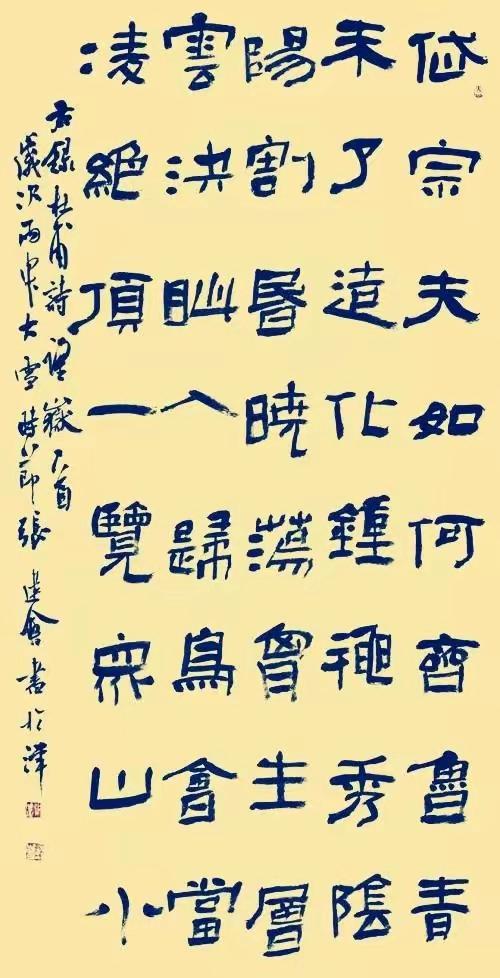 岱宗夫如何齊魯青
未了造化鍾神秀陰
陽割昏曉蕩胷生層
雲決眦入歸鳥會當
凌絕頂一覽眾山小
右録杜甫詩望嶽一首
歲次丙申大雪時節張建會書於津